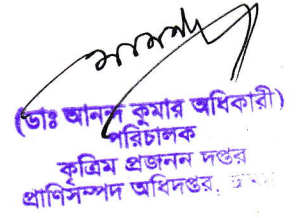 (ডাঃ আনন্দ কুমার অধিকারী)
পরিচালক
কৃত্রিম প্রজনন দপ্তর
প্রাণিসম্পদ অধিদপ্তর,